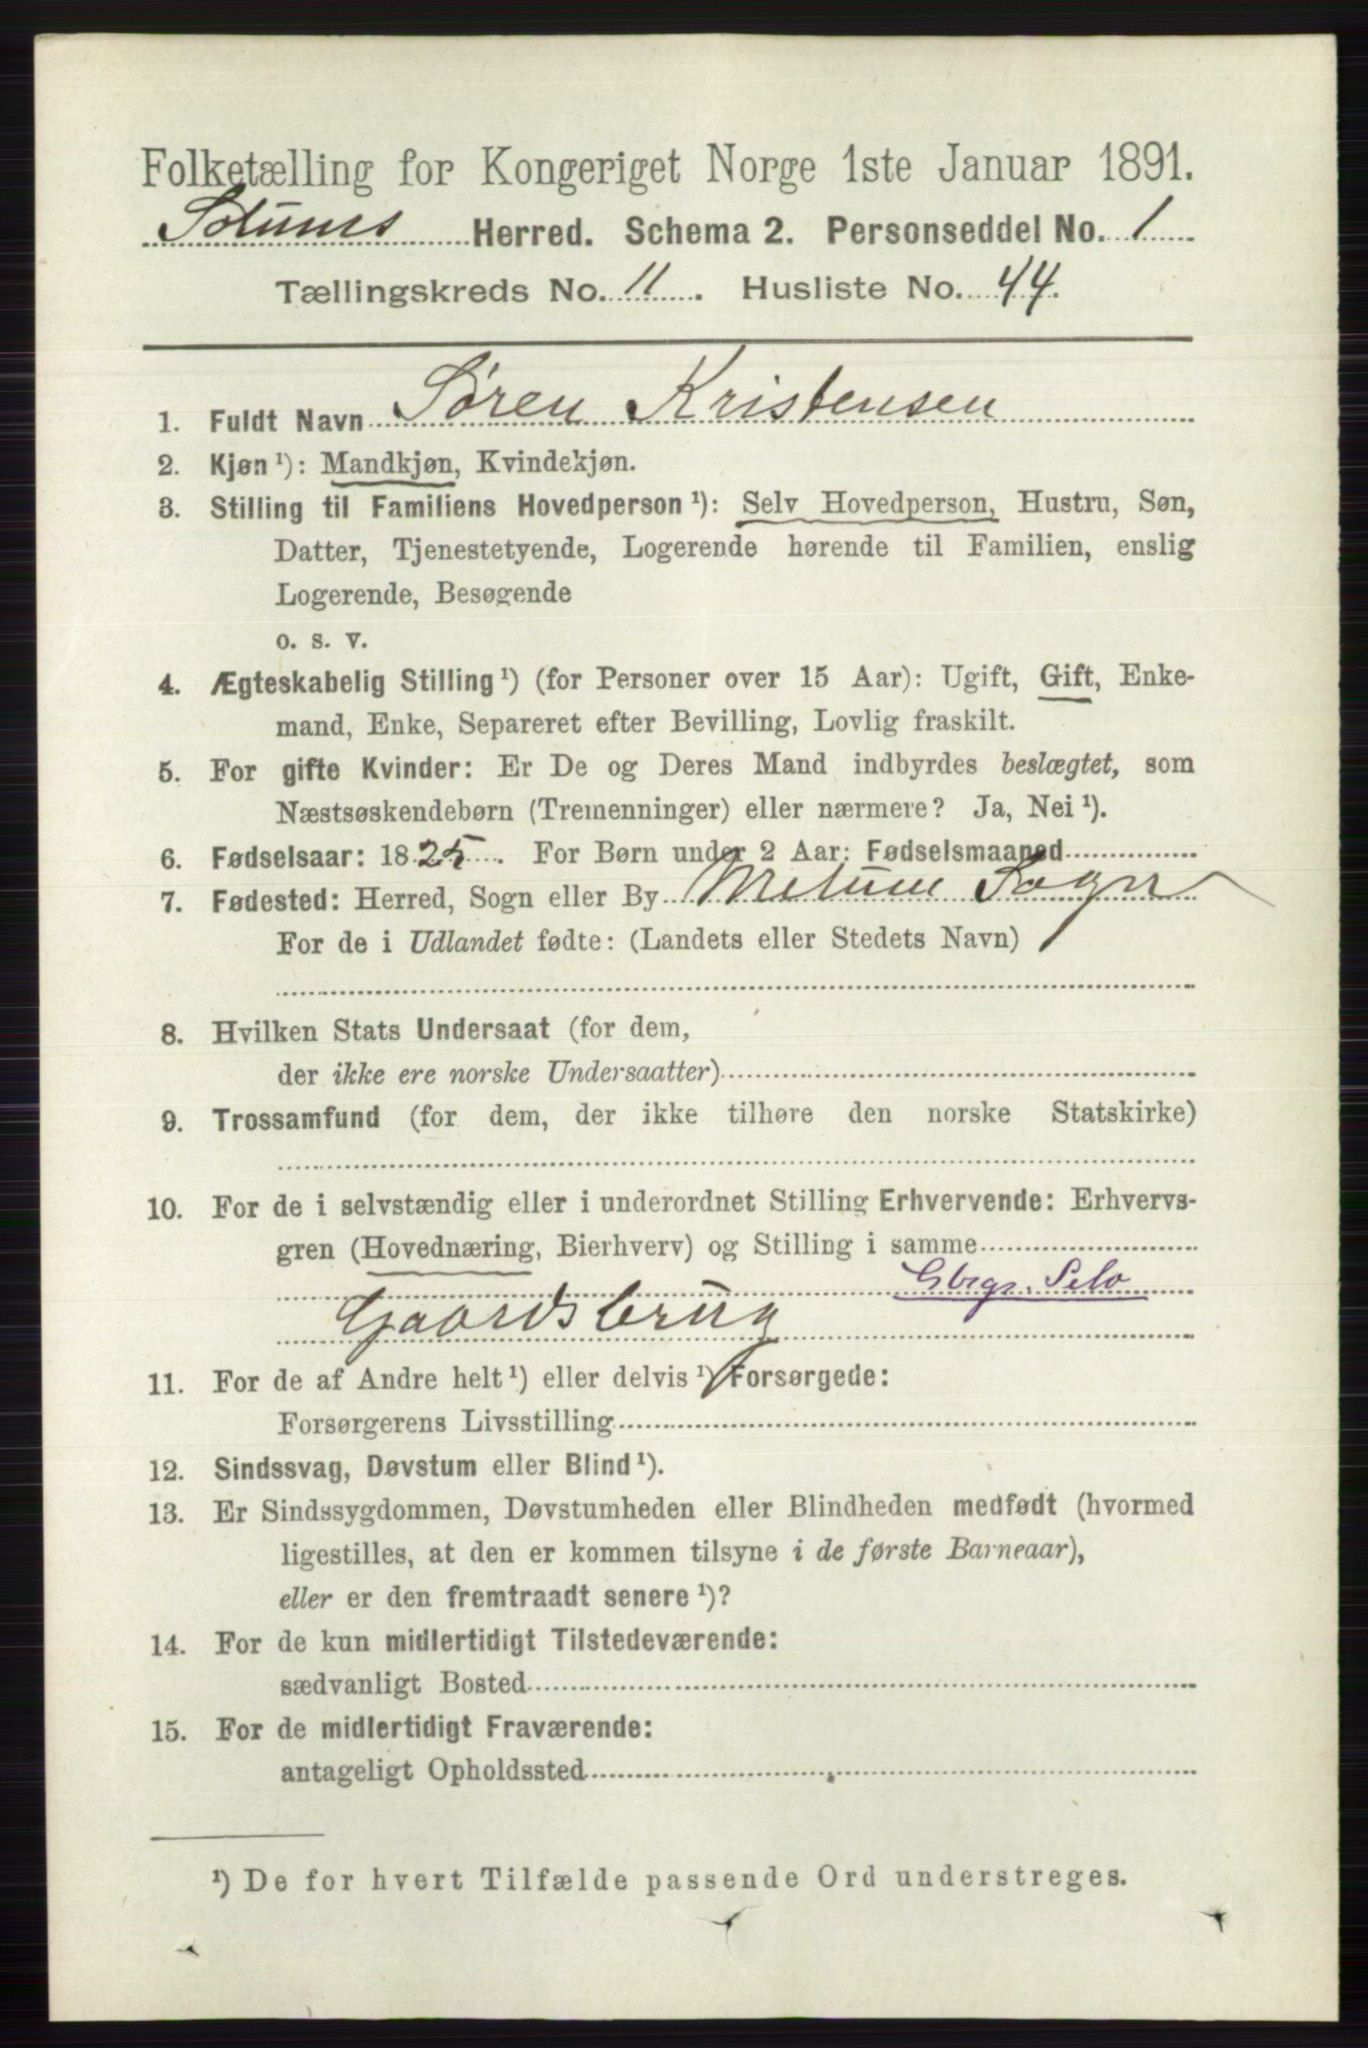 Folketælling for Kongeriget Norge 1ste Januar 1891.
Solums Herred. Schema 2. Personseddel No. 1
Tællingskreds No. 11. Husliste No. 44.
1. Fuldt Navn Søren Kristensen
2. Kjøn ¹): Mandkjøn, Kvindekjøn.
3. Stilling til Familiens Hovedperson ¹): Selv Hovedperson, Hustru, Søn,
Datter, Tjenestetyende, Logerende hørende til Familien, enslig
Logerende, Besøgende
o. s. v.
4. Ægteskabelig Stilling ¹) (for Personer over 15 Aar): Ugift, Gift, Enke-
mand, Enke, Separeret efter Bevilling, Lovlig fraskilt.
5. For gifte Kvinder: Er De og Deres Mand indbyrdes beslægtet, som
Næstsøskendebørn (Tremenninger) eller nærmere? Ja, Nei ¹).
6. Fødselsaar: 1825. For Børn under 2 Aar: Fødselsmaaned
7. Fødested: Herred, Sogn eller By Melum Sogn
For de i Udlandet fødte: (Landets eller Stedets Navn)
8. Hvilken Stats Undersaat (for dem,
der ikke ere norske Undersaatter)
9. Trossamfund (for dem, der ikke tilhøre den norske Statskirke)
10. For de i selvstændig eller i underordnet Stilling Erhvervende: Erhvervs-
gren (Hovednæring, Bierhverv) og Stilling i samme
Gbrgr. Selv
Gaardsbrug
11. For de af Andre helt ¹) eller delvis ¹) Forsørgede:
Forsørgerens Livsstilling
12. Sindssvag, Døvstum eller Blind ¹).
13. Er Sindssygdommen, Døvstumheden eller Blindheden medfødt (hvormed
ligestilles, at den er kommen tilsyne i de første Barneaar),
eller er den fremtraadt senere ¹)?
14. For de kun midlertidigt Tilstedeværende:
sædvanligt Bosted
15. For de midlertidigt Fraværende:
antageligt Opholdssted
¹) De for hvert Tilfælde passende Ord understreges.